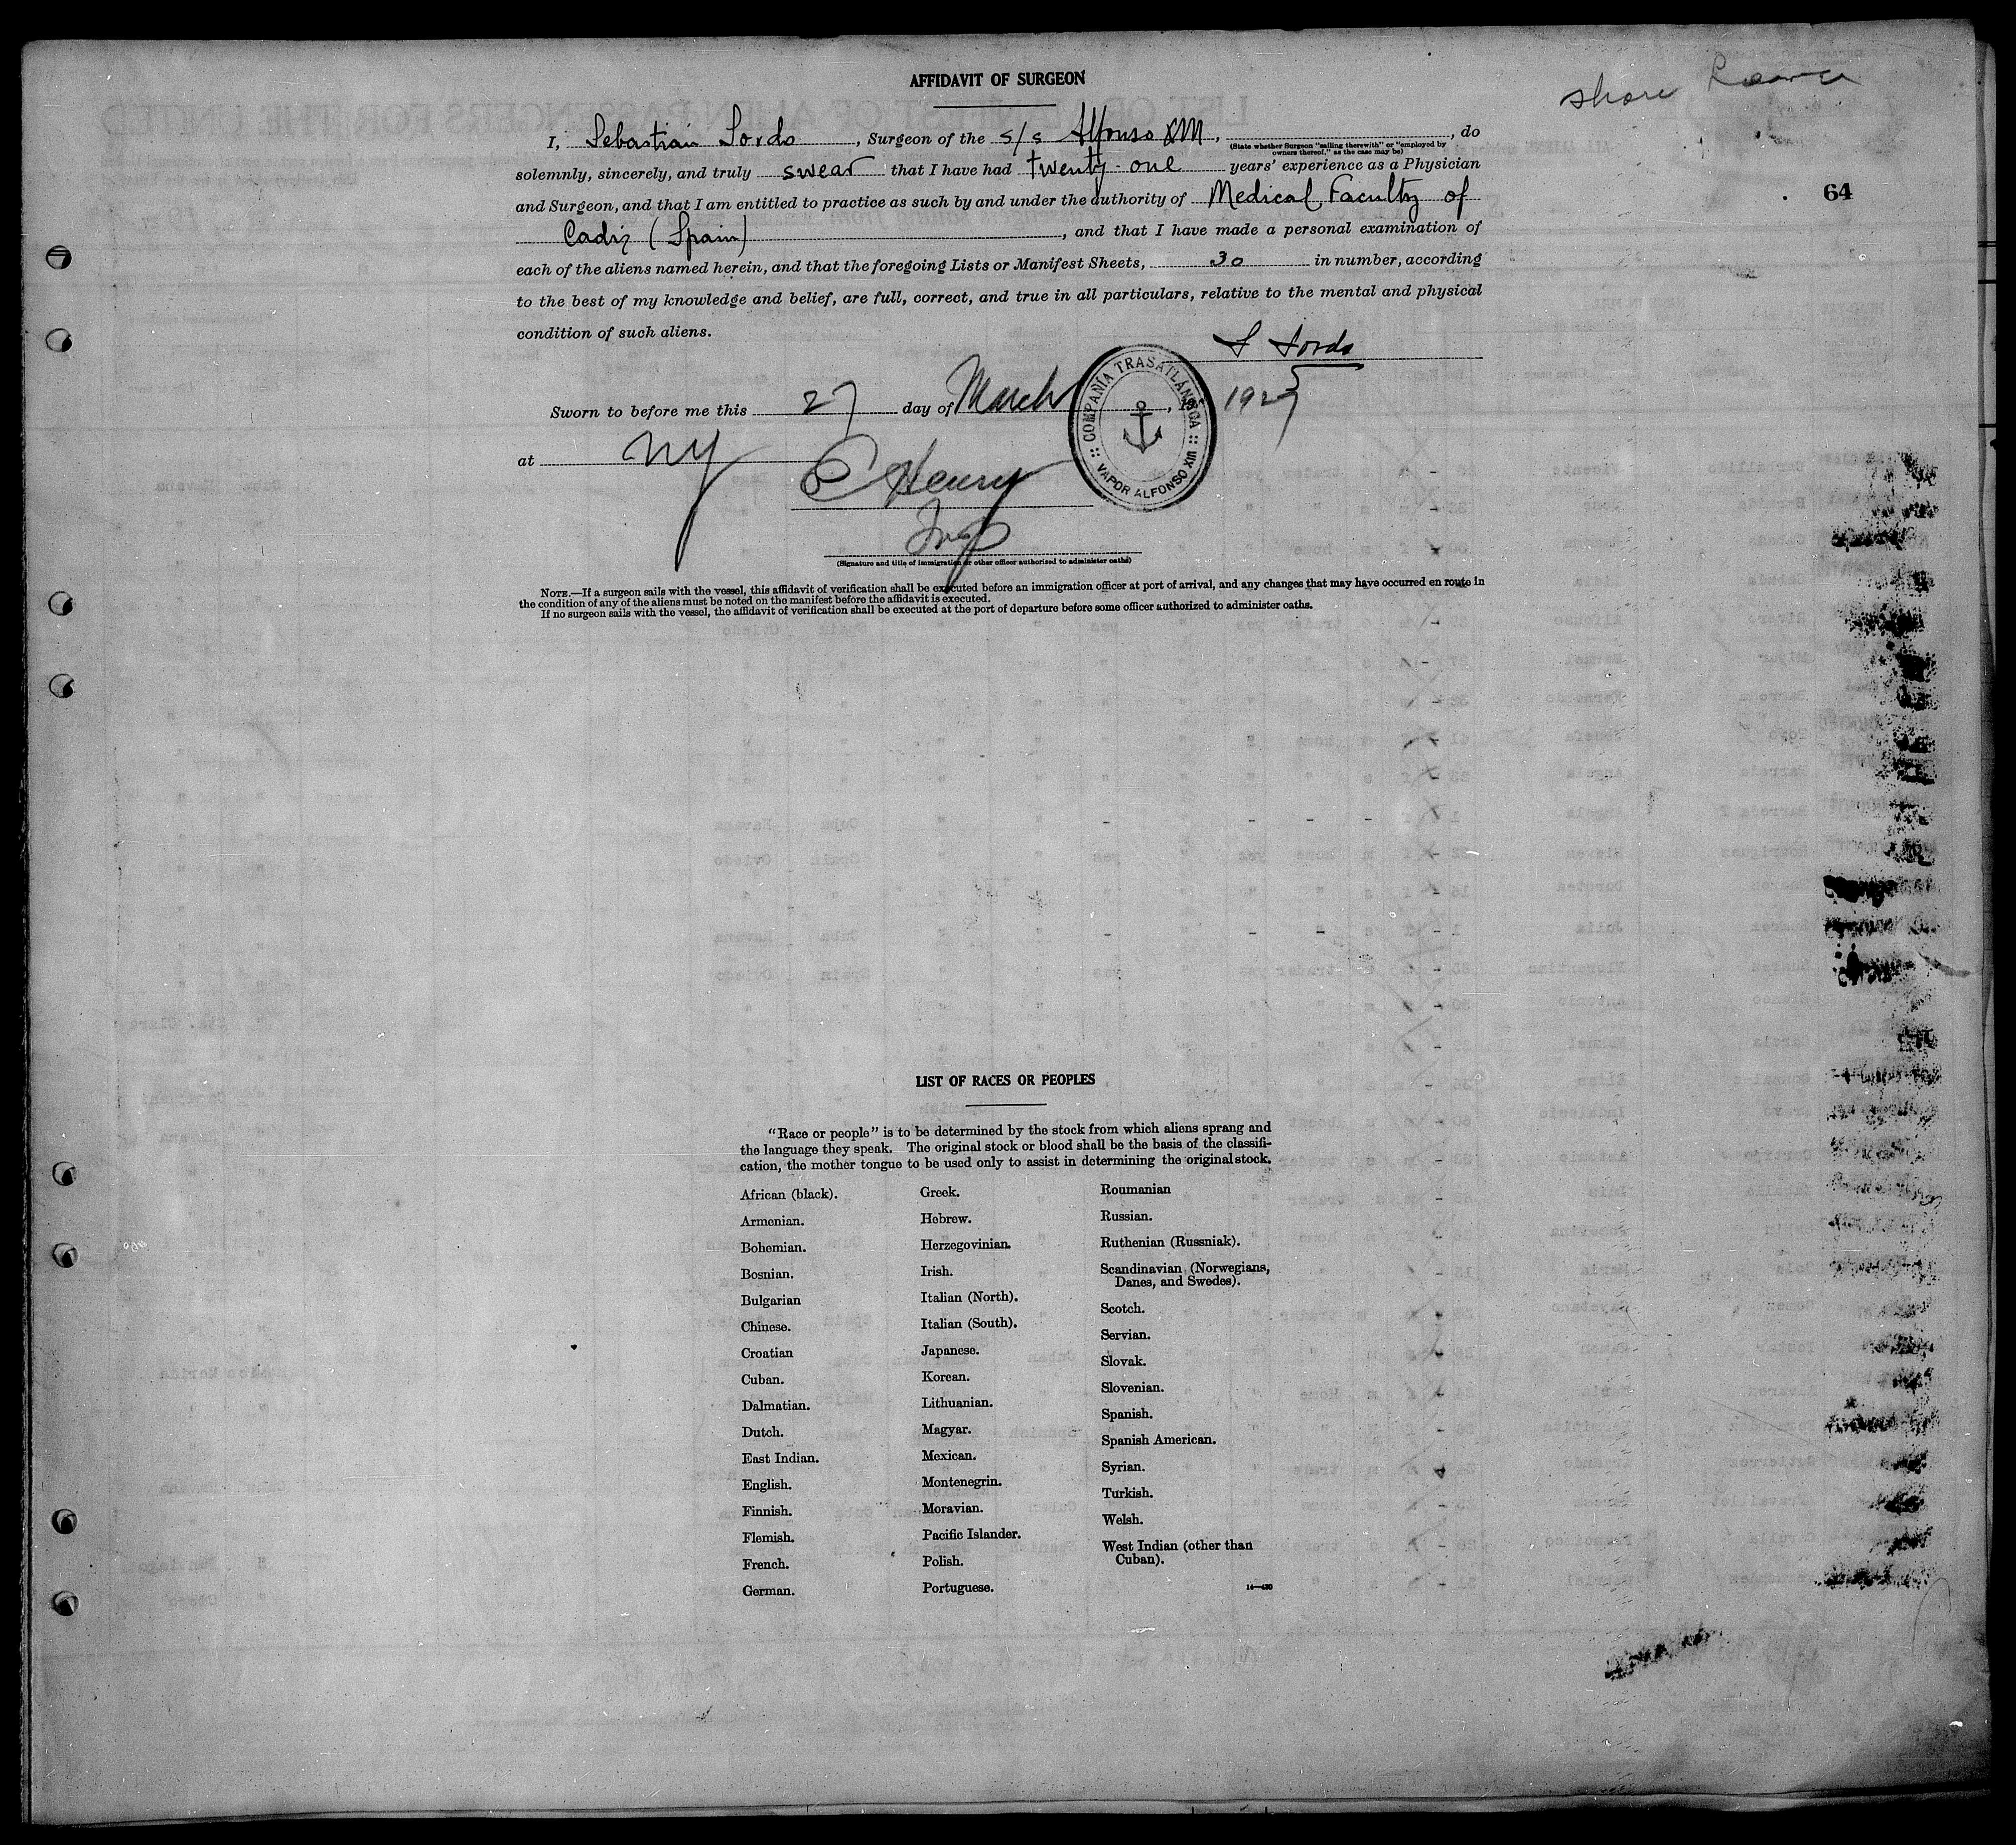 AFFIDAVIT OF SURGEON
share
I, Sebastian Sordo, Surgeon of the s/s Alfonso XIII, , do
(State whether Surgeon "sailing therewith" or "employed by
owners thereof," as the case may be)
solemnly, sincerely, and truly swear that I have had twenty-one years' experience as a Physician
64
and Surgeon, and that I am entitled to practice as such by and under the authority of Medical Faculty of
Cadiz (Spain), and that I have made a personal examination of
each of the aliens named herein, and that the foregoing Lists or Manifest Sheets, 30 in number, according
to the best of my knowledge and belief, are full, correct, and true in all particulars, relative to the mental and physical
condition of such aliens.
S Sordo
Sworn to before me this 27 day of March, 19
COMPAÑIA TRASATLÁNTICA :: VAPOR ALFONSO XIII ::
at NY
Henry
Insp
(Signature and title of immigration or other officer authorized to administer oaths)
NOTE.—If a surgeon sails with the vessel, this affidavit of verification shall be executed before an immigration officer at port of arrival, and any changes that may have occurred en route in
the condition of any of the aliens must be noted on the manifest before the affidavit is executed.
If no surgeon sails with the vessel, the affidavit of verification shall be executed at the port of departure before some officer authorized to administer oaths.
LIST OF RACES OR PEOPLES
"Race or people" is to be determined by the stock from which aliens sprang and
the language they speak. The original stock or blood shall be the basis of the classifi-
cation, the mother tongue to be used only to assist in determining the original stock.
African (black).
Armenian.
Bohemian.
Bosnian.
Bulgarian
Chinese.
Croatian
Cuban.
Dalmatian.
Dutch.
East Indian.
English.
Finnish.
Flemish.
French.
German.
Greek.
Hebrew.
Herzegovinian.
Irish.
Italian (North).
Italian (South).
Japanese.
Korean.
Lithuanian.
Magyar.
Mexican.
Montenegrin.
Moravian.
Pacific Islander.
Polish.
Portuguese.
Roumanian
Russian.
Ruthenian (Russniak).
Scandinavian (Norwegians,
Danes, and Swedes).
Scotch.
Servian.
Slovak.
Slovenian.
Spanish.
Spanish American.
Syrian.
Turkish.
Welsh.
West Indian (other than
Cuban).
14—430